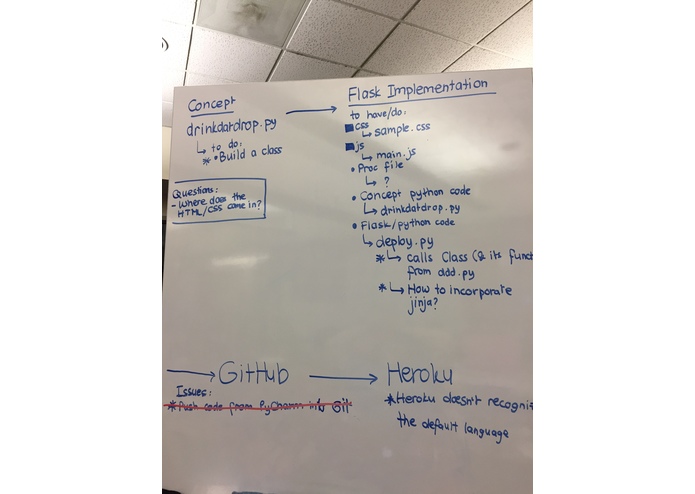 Concept
drinkdatdrop.py
↳ to do:
* • Build a class
Questions:
- Where does the
HTML/CSS come in?
Flask Implementation
to have/do:
■ css
↳ sample.css
■ js
↳ main.js
• Proc file
↳ ?
• Concept python code
↳ drinkdatdrop.py
• Flask/python code
↳ deploy.py
* ↳ calls Class (& its funct
from ddd.py
* ↳ How to incorporate
jinja?
→ GitHub → Heroku
Issues:
* Push code from PyCharm into Git
* Heroku doesn't recogni
the default language